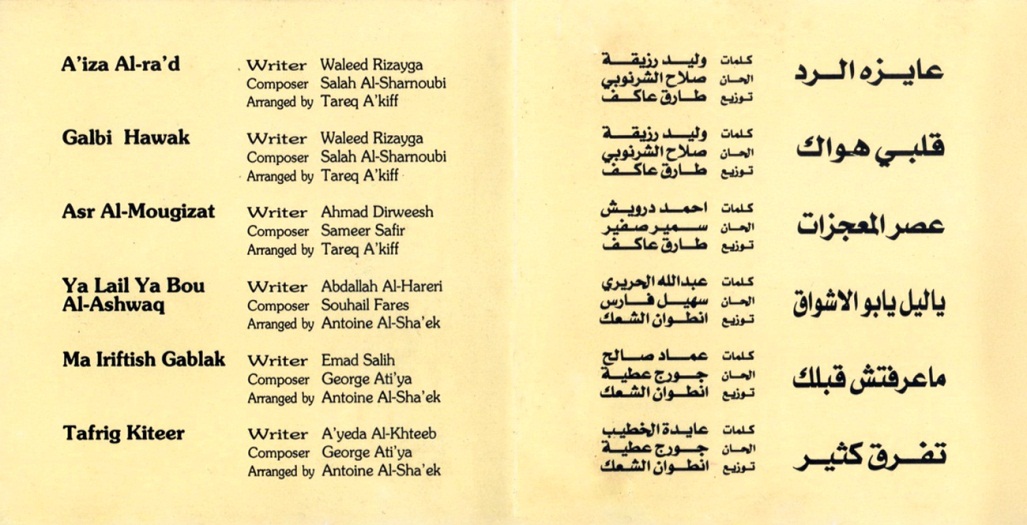 A'iza Al-ra'd
Writer Waleed Rizayga
Composer Salah Al-Sharnoubi
Arranged by Tareq A'kiff
Galbi Hawak
Writer Waleed Rizayga
Composer Salah Al-Sharnoubi
Arranged by Tareq A'kiff
Asr Al-Mougizat
Writer Ahmad Dirweesh
Composer Sameer Safir
Arranged by Tareq A'kiff
Ya Lail Ya Bou
Al-Ashwaq
Writer Abdallah Al-Hareri
Composer Souhail Fares
Arranged by Antoine Al-Sha'ek
Ma Iriftish Gablak
Writer Emad Salih
Composer George Ati'ya
Arranged by Antoine Al-Sha'ek
Tafrig Kiteer
Writer A'yeda Al-Khteeb
Composer George Ati'ya
Arranged by Antoine Al-Sha'ek
عايزه الرد
كلمات وليد رزيقة
الحان صلاح الشرنوبي
توزيع طارق عاكف
قلبي هواك
كلمات وليد رزيقة
الحان صلاح الشرنوبي
توزيع طارق عاكف
عصر المعجزات
كلمات احمد درويش
الحان سمير صفير
توزيع طارق عاكف
ياليل يابو الاشواق
كلمات عبدالله الحريري
الحان سهيل فارس
توزيع انطوان الشعك
ماعرفتش قبلك
كلمات عماد صالح
الحان جورج عطية
توزيع انطوان الشعك
تفرق كثير
كلمات عايدة الخطيب
الحان جورج عطية
توزيع انطوان الشعك